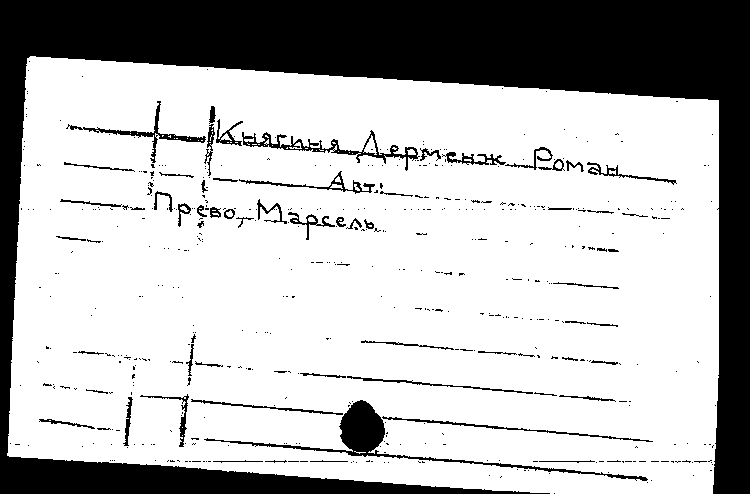 Княгиня Дерменж Роман
Авт.:
Прево, Марсель